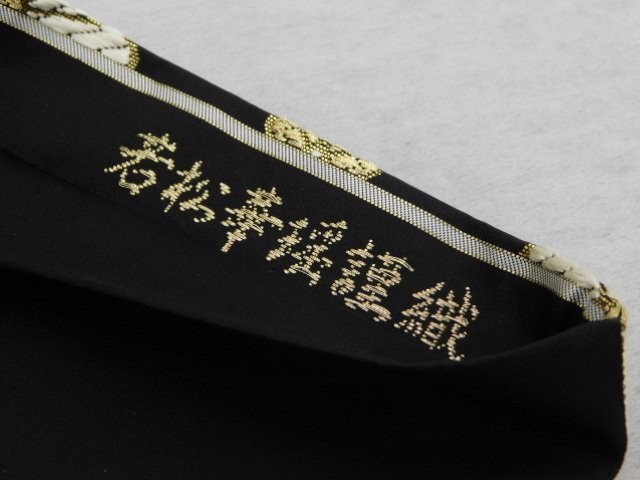 若松華瑶謹織